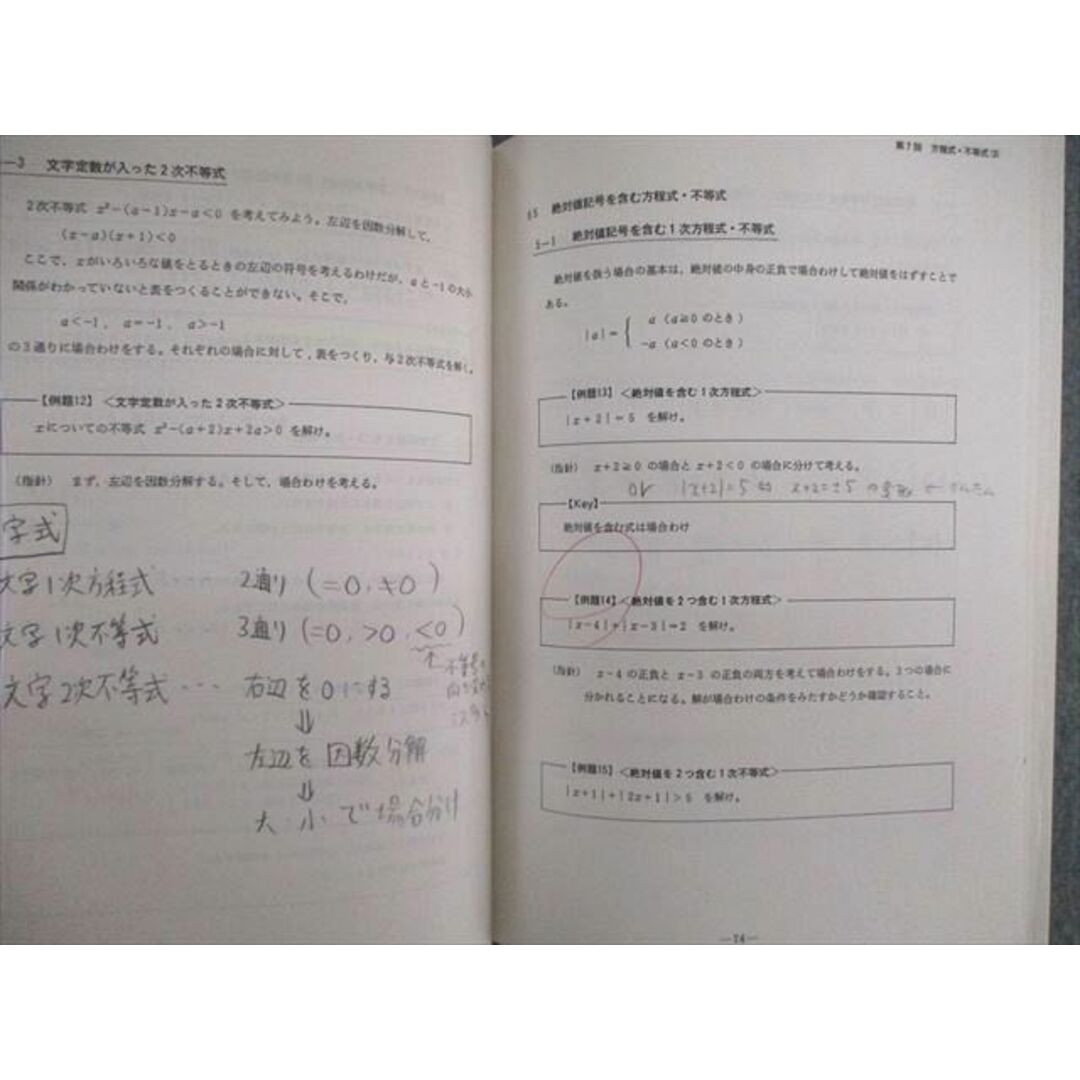 ―3 文字定数が入った2次不等式
2次不等式 x²−(a−1)x−a<0 を考えてみよう。左辺を因数分解して,
(x−a)(x+1)<0
ここで、xがいろいろな値をとるときの左辺の符号を考えるわけだが、aと−1の大小
関係がわかっていないと表をつくることができない。そこで,
a<−1, a=−1, a>−1
の3通りに場合わけをする。それぞれの場合に対して,表をつくり、与2次不等式を解く。
【例題12】<文字定数が入った2次不等式>
xについての不等式 x²−(a+2)x+2a>0 を解け。
(指針) まず,左辺を因数分解する。そして,場合わけを考える。
字式
文字1次方程式 2通り (=0, ≠0)
文字1次不等式 3通り (=0, >0, <0)
不等号
文字2次不等式 ··· 右辺を0にする
⇓
左辺を因数分解
⇓
大小で場合分け
第7回 方程式・不等式(2)
§5 絶対値記号を含む方程式・不等式
5−1 絶対値記号を含む1次方程式・不等式
絶対値を扱う場合の基本は,絶対値の中身の正負で場合わけして絶対値をはずすことで
ある。
|a|={ a (a≧0 のとき)
−a (a<0 のとき)
【例題13】<絶対値を含む1次方程式>
|x+2|=5 を解け。
(指針) x+2≧0 の場合と x+2<0 の場合に分けて考える。
or |x+2|=5 ⇔ x+2=±5 の変形 ← かんたん
【Key】
絶対値を含む式は場合わけ
【例題14】<絶対値を2つ含む1次方程式>
|x−4|+|x−3|=2 を解け。
(指針) x−4 の正負と x−3 の正負の両方を考えて場合わけをする。3つの場合に
分かれることになる。解が場合わけの条件をみたすかどうか確認すること。
【例題15】<絶対値を2つ含む1次不等式>
|x+1|+|2x+1|>5 を解け。
―74―